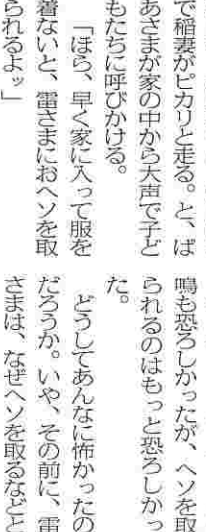 で稲妻がピカリと走る。と、ば
あさまが家の中から大声で子ど
もたちに呼びかける。
「ほら、早く家に入って服を
着ないと、雷さまにおヘソを取
られるよッ」
鳴も恐ろしかったが、ヘソを取
られるのはもっと恐ろしかっ
た。
どうしてあんなに怖かったの
だろうか。いや、その前に、雷
さまは、なぜヘソを取るなどと